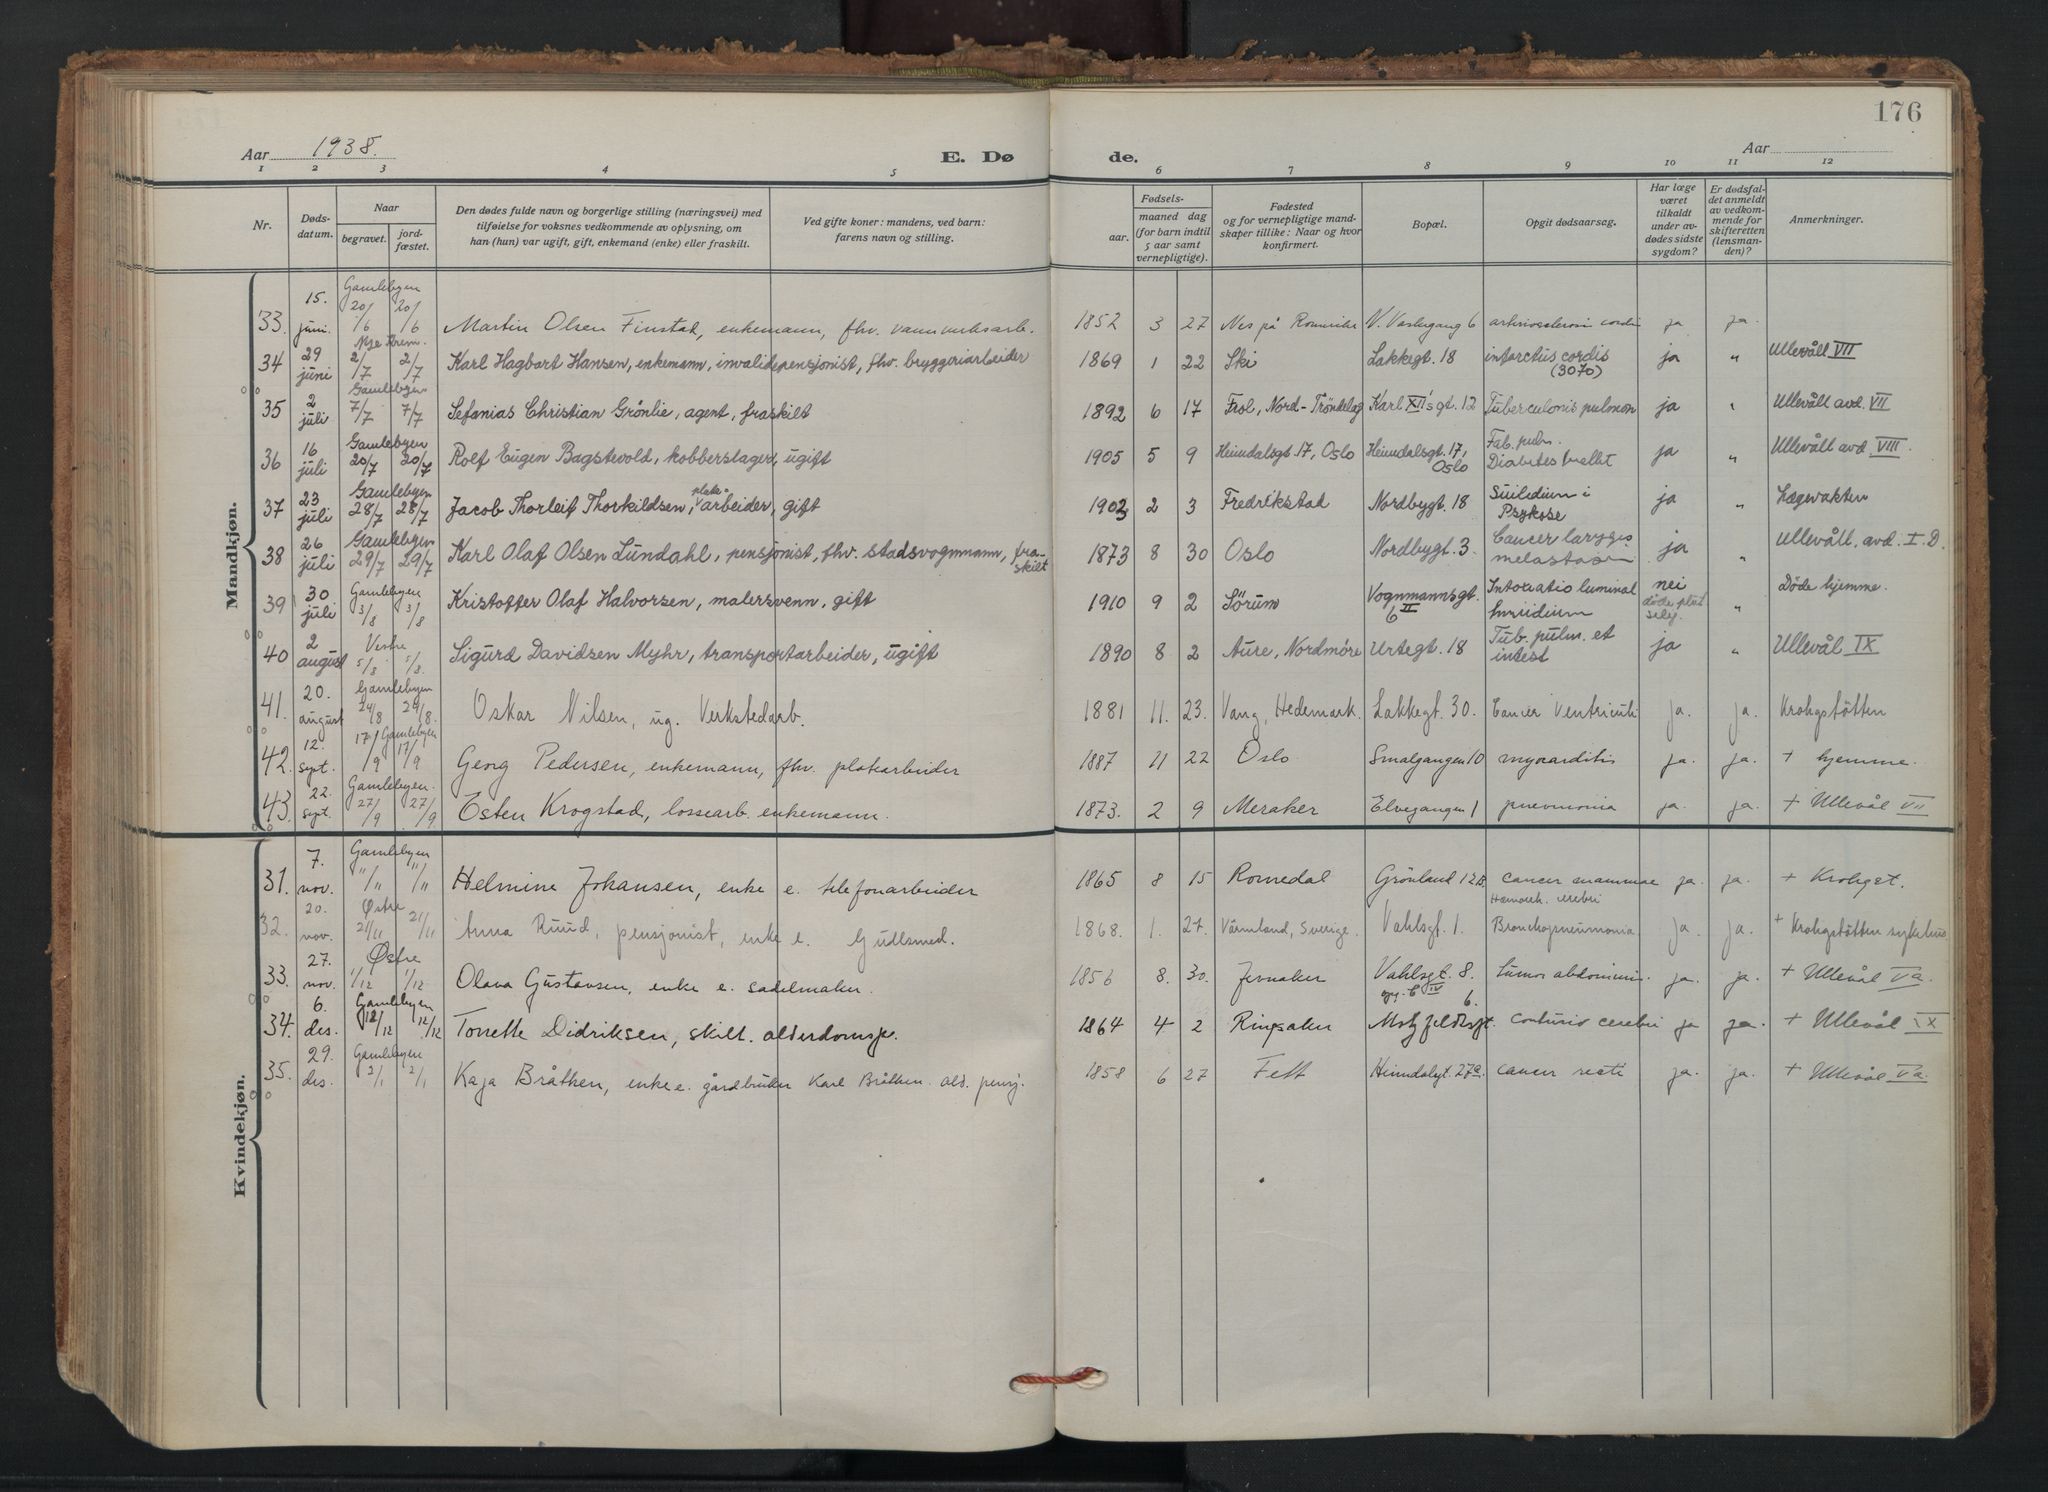 176
Aar 1938.
E. Dø
de.
Aar
1 2 3 4 5 6 7 8 9 10 11 12
Nr.
Døds-
datum.
Naar
begravet.
jord-
fæstet.
Den dødes fulde navn og borgerlige stilling (næringsvei) med
tilføielse for voksnes vedkommende av oplysning, om
han (hun) var ugift, gift, enkemand (enke) eller fraskilt.
Ved gifte koner: mandens, ved barn:
farens navn og stilling.
Fødsels-
aar.
maaned dag
(for barn indtil
5 aar samt
vernepligtige).
Fødested
og for vernepligtige mand-
skaper tillike: Naar og hvor
konfirmert.
Bopæl.
Opgit dødsaarsag.
Har læge
været
tilkaldt
under av-
dødes sidste
sygdom?
Er dødsfal-
det anmeldt
av vedkom-
mende for
skifteretten
(lensman-
den)?
Anmerkninger.
Mandkjøn.
33. 15. juni. Gamlebyen 20/6 20/6 Martin Olsen Finstad, enkemann, fhv. vannverksarb. 1852 3 27 Nes på Romerike V. Vaskegang 6 arteriosclerosis cordis ja ja.
34 29 juni Nye Krem. 2/7 2/7 Karl Hagbart Hansen, enkemann, invalidepensjonist, fhv. bryggeriarbeider 1869 1 22 Ski Lakkegt. 18 infarctus cordis (3070) ja " Ullevåll VII
35 2 juli Gamlebyen 7/7 7/7 Sefanias Christian Grønlie, agent, fraskilt 1892 6 17 Frol, Nord-Trøndelag Karl XII's gt. 12 Tuberculosis pulmon ja " Ullevåll avd. VII
36 16 juli Gamlebyen 20/7 20/7 Rolf Eugen Bagstevold, kobberslager, ugift 1905 5 9 Heimdalsgt. 17, Oslo Heimdalsgt. 17, Oslo pulm. Diabetes mellit ja " Ullevåll avd. VIII.
37 23 juli Gamlebyen 28/7 28/7 Jacob Thorleif Thorkildsen, plate-arbeider, gift 1903 2 3 Fredrikstad Nordbygt. 18 Suicidium i Psykose ja " Lægevakten
38 26 juli Gamlebyen 29/7 29/7 Karl Olaf Olsen Lundahl, pensjonist, fhv. stadsvognmann, fra-skilt 1873 8 30 Oslo Nordbygt. 3. Cancer laryngis metastasin ja " Ullevåll. avd. I. D.
39 30 juli Gamlebyen 3/8 3/8 Kristoffer Olaf Halvorsen, malersvenn, gift 1910 9 2 Sörum Vognmannsgt. 6 II Intoxatio luminal suicidium nei døde plut selig. " Döde hjemme.
40 2 august Vestre 5/8 5/8. Sigurd Davidsen Myhr, transportarbeider, ugift 1890 8 2 Aure, Nordmöre Urtegt. 18 Tub. pulm. et intest ja " Ullevål IX
41. 20. august Gamlebyen 24/8 24/8. Oskar Nilsen, ug. Verkstedarb. 1881 11. 23. Vang, Hedemark. Lakkegt. 30. Cancer Ventriculi ja. ja. Krohgstötten
42. 12. sept. Gamlebyen 17/9 17/9 Georg Pedersen, enkemann, fhv. platearbeider 1887 11 22 Oslo Smalgangen 10 myocarditis ja. ja. + hjemme.
43. 22. sept. Gamlebyen. 27/9 27/9 Esten Krogstad, lossearb. enkemann. 1873. 2 9 Meraker Elvegangen 1 pneumonia ja. ja. + Ullevål VII
Kvindekjøn.
31. 7. nov. Gamlebyen 11/11 11/11 Helmine Johansen, enke e. telefonarbeider 1865 8 15 Romedal Grönland 12 B. cancer mammae Hæmorrh. cerebri ja. ja. + Krohgst.
32. 20. nov. Østre 21/11 21/11 Anna Ruud, pensjonist, enke e. Gullsmed. 1868. 1. 27. Värmland, Sverige. Vahlsgt. 1. Bronchopneumonia ja. ja. + Krohgstötten sykehus
33. 27. nov. Østre 1/12 1/12 Olava Gustavsen, enke e. sadelmaker. 1856 8. 30. Jevnaker Vahlsgt. 8. opg. C IV tumor abdominis ja. ja. + Ullevål Va.
34. 6. des. Gamlebyen 12/12 12/12 Tonette Didriksen, skilt. alderdomsp. 1864 4 2 Ringsaker Motzfeldtsgt. 6. contusio cerebri ja ja. + Ullevål IX
35. 29. des. Gamlebyen 2/1 2/1 Kaja Bråthen, enke e. gårdbruker Karl Bråthen. ald. pensj. 1858 6 27 Fett Heimdalsgt. 27a. cancer recti ja. ja. + Ullevål Va.